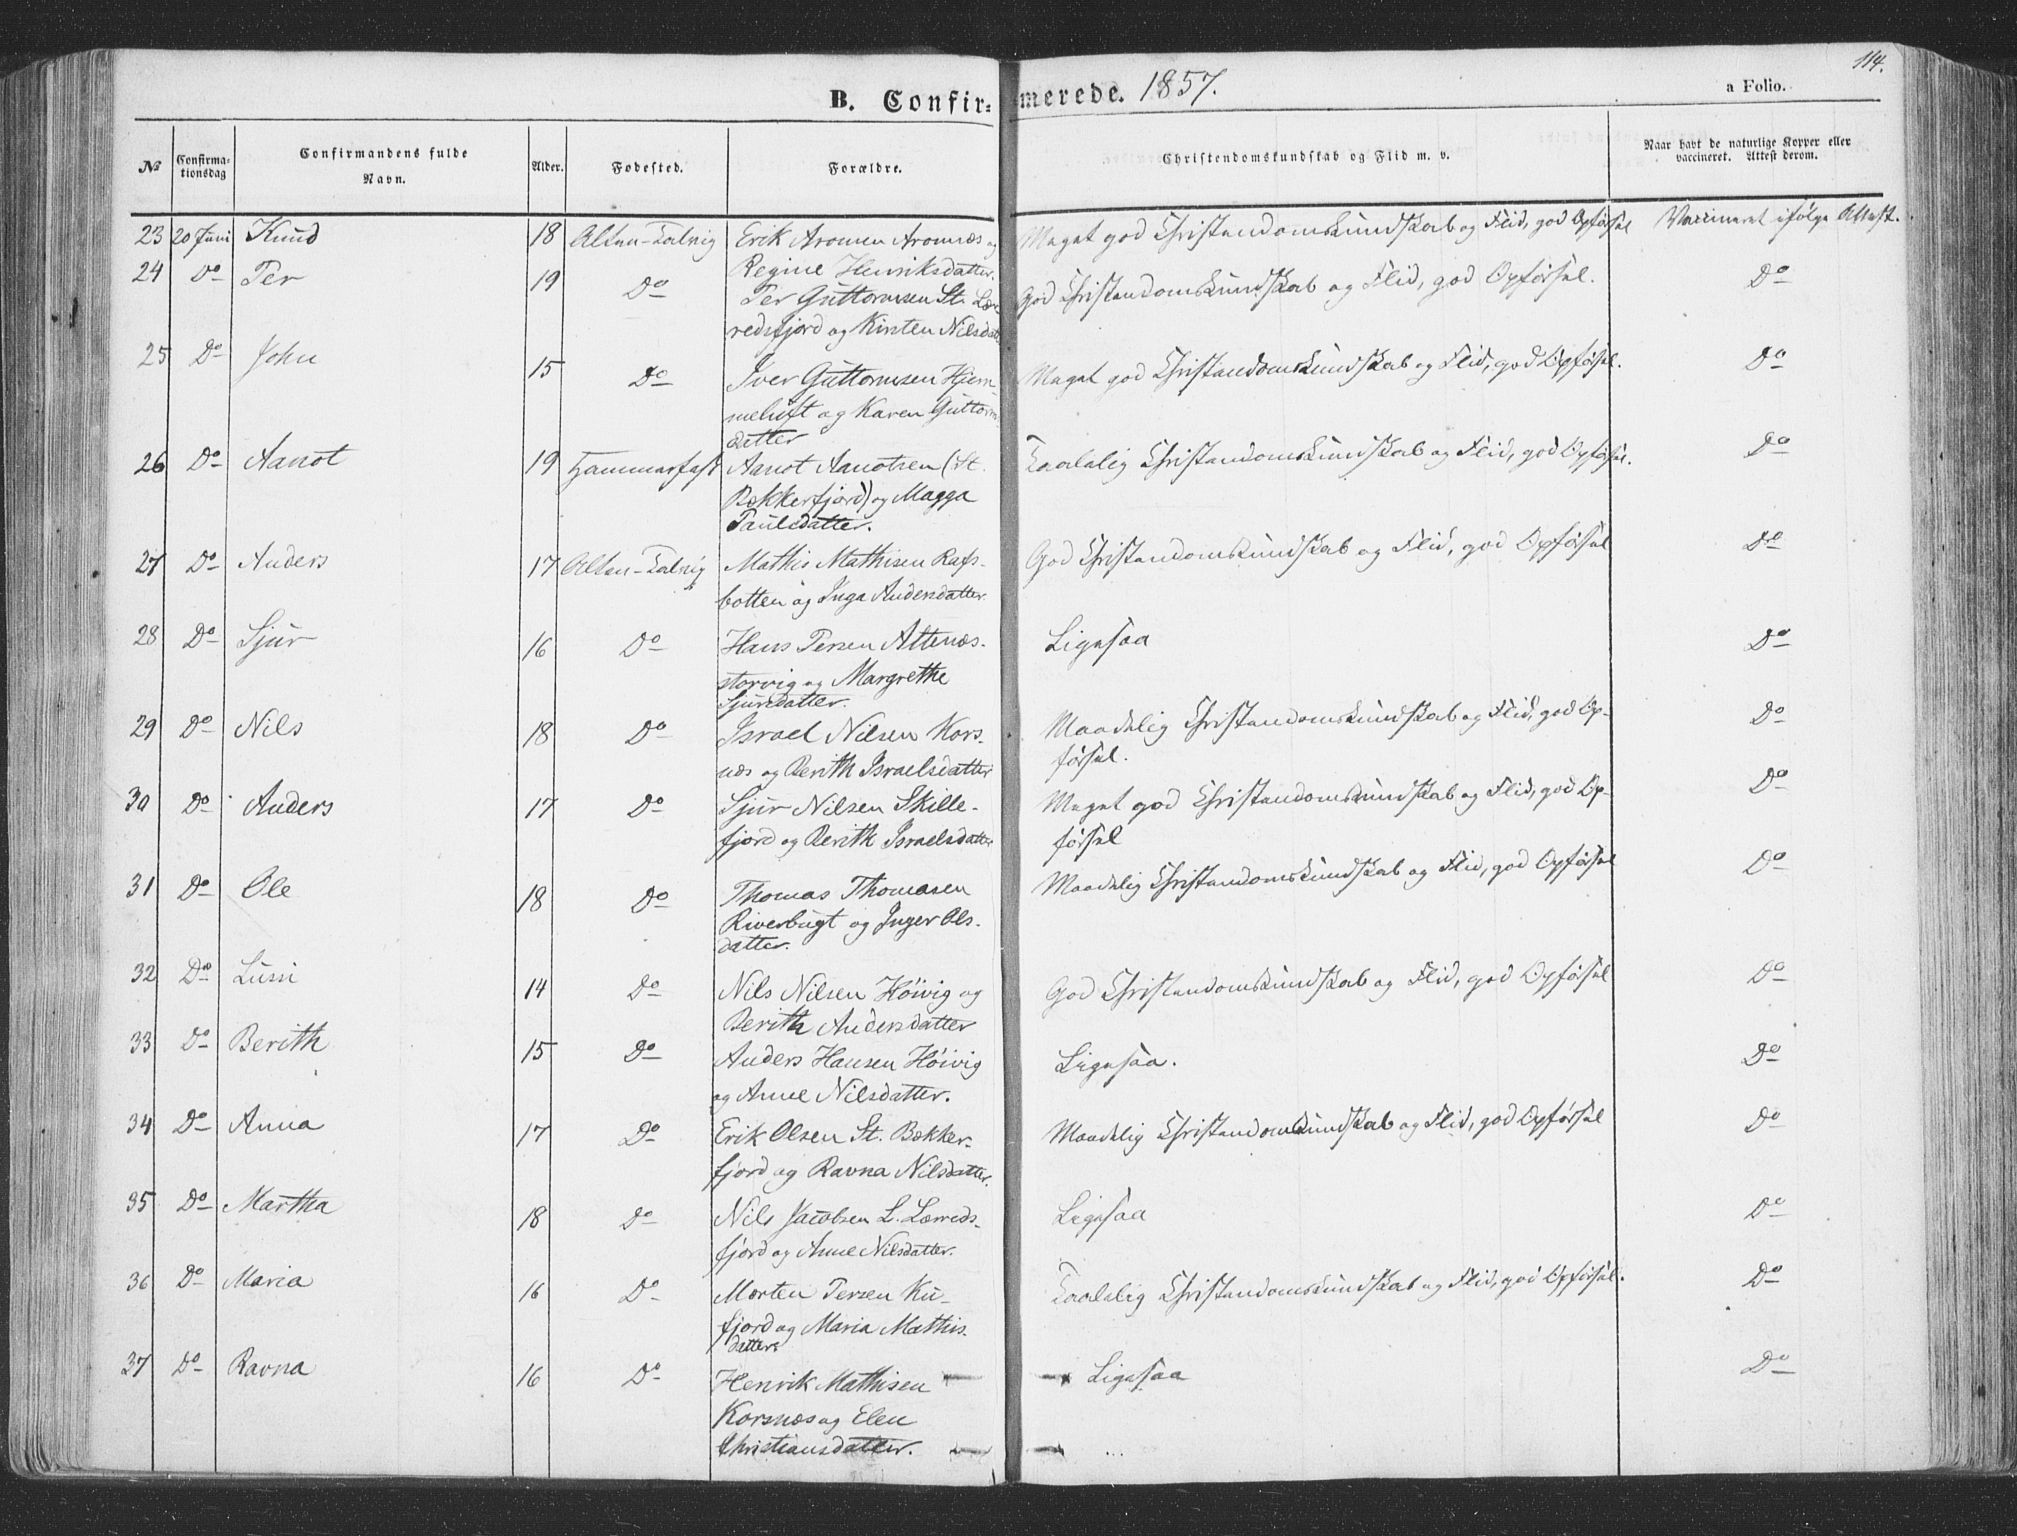 114.
B. Confir= merede. 1857. a Folio.
№ Confirma- tionsdag Confirmandens fulde Navn. Alder. Fødested. Forældre. Christendomskundskab og Flid m. v. Naar havt de naturlige Kopper eller vaccineret. Attest derom.
23 20 Juni Knud 18 Alten-Talvig Erik Aronsen Aronnæs og Meget god Christendomskundskab og Flid, god Opførsel Vaccineret ifølge Attest.
Regine Henriksdatter.
24 Do Per 19 Do Per Guttormsen St. Lær- God Christendomskundskab og Flid, god Opførsel. Do
redsfjord og Kirsten Nilsdat
25 Do John 15 Do Iver Guttormsen Hjem- Meget god Christendomskundskab og Flid, god Opførsel. Do
meluft og Karen Guttorm
datter
26 Do Aanot 19 Hammerfest Aanot Aanotsen (St. Taalelig Christendomskundskab og Flid, god Opførsel. Do
Bekkerfjord) og Magga
Paulsdatter.
27 Do Anders 17 Alten-Talvig Mathis Mathisen Rafs- God Christendomskundskab og Flid, god Opførsel Do
botten og Inga Andersdatter
28 Do Sjur 16 Do Hans Persen Altenæs- Ligesaa Do
storvig og Margrethe
Sjursdatter.
29 Do Nils 18 Do Israel Nilsen Kors- Maadelig Christendomskundskab og Flid, god Op-
næs og Berith Israelsdatter førsel. Do
30 Do Anders 17 Do Sjur Nilsen Skille- Meget god Christendomskundskab og Flid, god Op- Do
fjord og Berith Israelsdatter førsel
31 Do Ole 18 Do Thomas Thomasen Maadelig Christendomskundskab og Flid, god Opførsel Do
Riverbugt og Inger Ols-
datter.
32 Do Lussi 14 Do Nils Nilsen Høivig og God Christendomskundskab og Flid, god Opførsel Do
Berith Andersdatter
33 Do Berith 15 Do Anders Hansen Høivig Ligesaa. Do
og Anne Nilsdatter.
34 Do Anna 17 Do Erik Olsen St. Bekker- Maadelig Christendomskundskab og Flid, god Opførsel Do
fjord og Ravna Nilsdatter.
35 Do Martha 18 Do Nils Jacobsen L. Lerreds- Ligesaa Do
fjord og Anne Nilsdatter.
36 Do Maria 16 Do Morten Persen Ku- Taalelig Christendomskundskab og Flid, god Opførsel. Do
fjord og Maria Mathis-
datter
37 Do Ravna 16 Do Henrik Mathisen Ligesaa Do
Korsnæs og Elen
Christiansdatter.